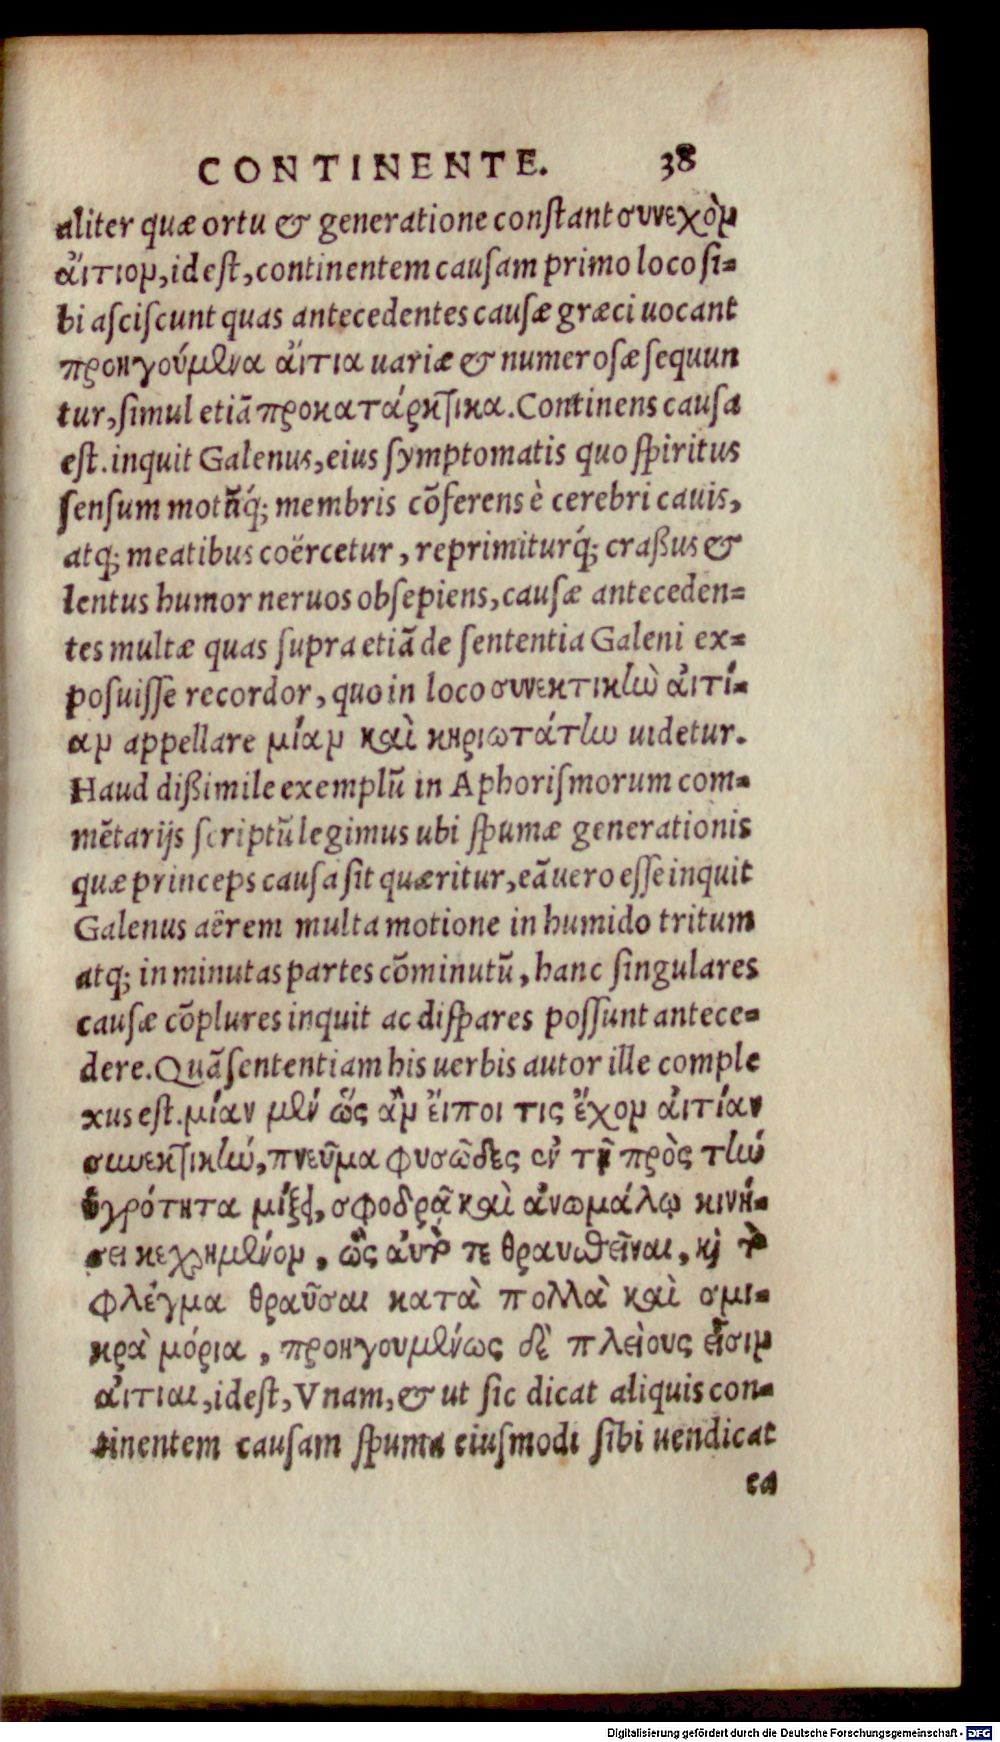 CONTINENTE. 38
aliter quæ ortu & generatione constant συνεχὸν
ἄιτιον, id est, continentem causam primo loco si=
bi asciscunt quas antecedentes causæ græci uocant
προηγούμενα ἄιτια uariæ & numerosæ sequun
tur, simul etiā προκατάρκτικα. Continens causa
est. inquit Galenus, eius symptomatis quo spiritus
sensum motūq́; membris cōferens è cerebri cauis,
atq; meatibus coërcetur, reprimiturq́; craßus &
lentus humor neruos obsepiens, causæ anteceden=
tes multæ quas supra etiā de sententia Galeni ex=
posuisse recordor, quo in loco συνεκτικὴν ἀιτί=
αν appellare μίαν καὶ κηριωτάτην uidetur.
Haud dißimile exemplū in Aphorismorum com=
mētarijs scriptū legimus ubi spumæ generationis
quæ princeps causa sit quæritur, eā uero esse inquit
Galenus aërem multa motione in humido tritum
atq; in minutas partes cōminutū, hanc singulares
causæ cōplures inquit ac dispares possunt antece=
dere. Quā sententiam his uerbis autor ille comple
xus est. μίαν μὲν ὥς ἂν ἔιποι τις ἔχον ἀιτίαν
συνεκτικὴν, πνεῦμα φυσῶδες ἐν τῇ πρὸς τὴν
ὑγρότητα μίξει, σφοδρᾷ καὶ ἀνωμάλῳ κινή=
σει κεχρημένον, ὥς ἀυτό τε θραυσθεῖναι, καὶ τὸ
φλέγμα θραῦσαι κατὰ πολλὰ καὶ σμι=
κρὰ μόρια, προηγουμένως δὲ πλείους εἶσιν
ἀιτιαι, id est, Vnam, & ut sic dicat aliquis con=
tinentem causam spuma eiusmodi sibi uendicat
ea
Digitalisierung gefördert durch die Deutsche Forschungsgemeinschaft - DFG